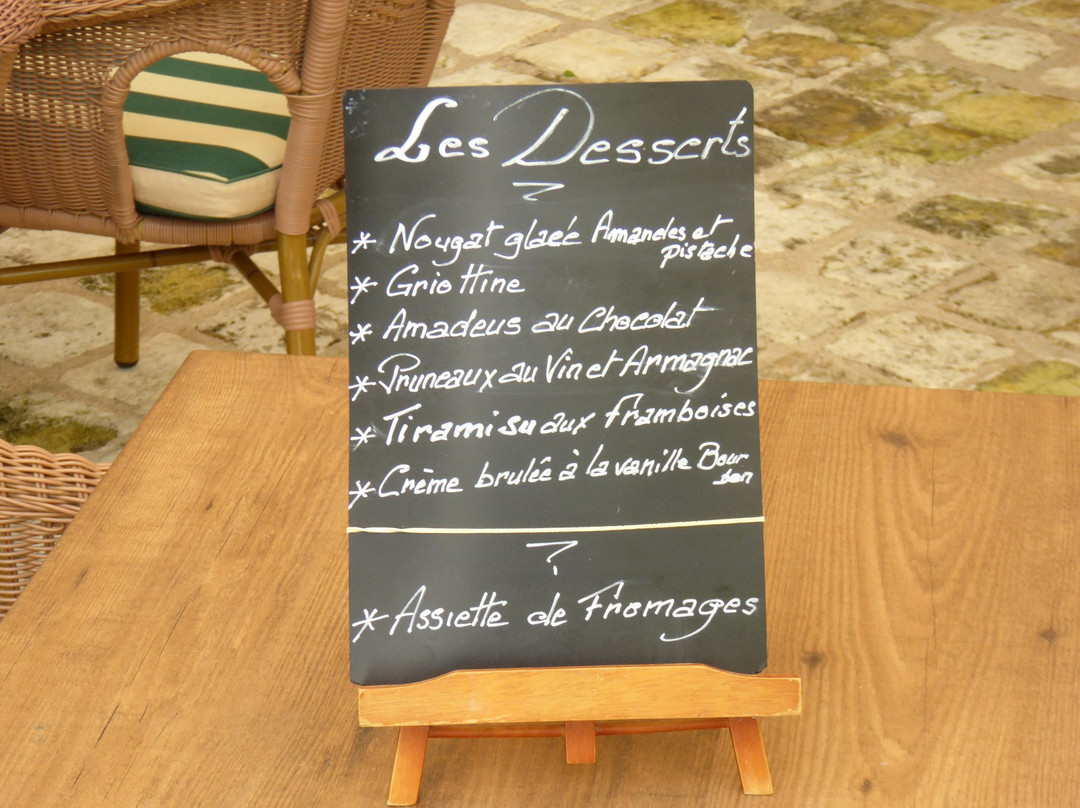 Les Desserts
* Nougat glacé Amandes et
pistache
* Griottine
* Amadeus au Chocolat
* Pruneaux au Vin et Armagnac
* Tiramisu aux Framboises
* Crème brulée à la vanille Bour-
bon
* Assiette de Fromages